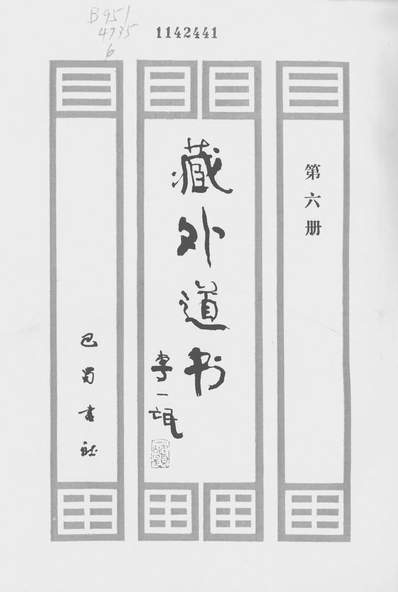 B951
4735
6
1142441
第六册
藏外道书
李一氓
巴蜀书社